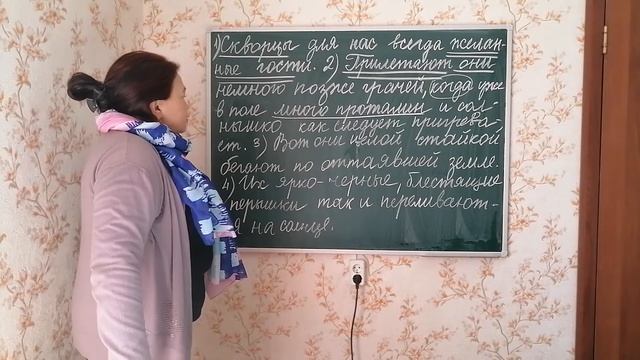 1) Скворцы для нас всегда желан-
ные гости. 2) Прилетают они
немного позже грачей, (когда уже
в поле много проталин и сол-
нышко как следует пригрева-
ет. 3) Вот они целой стайкой
бегают по оттаявшей земле.
4) Их ярко-черные, блестящие
перышки так и переливают-
я на солнце.